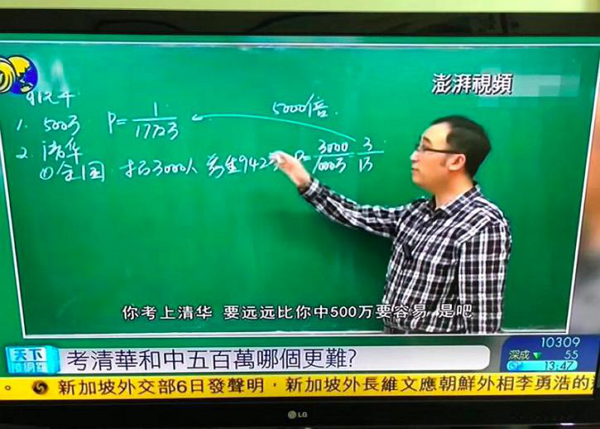 澎湃視頻
1. 500万 P=1/1772万
5000倍
2. 清华
①全国 招3000人 考生942万 P=3000/1000万 3/1万
你考上清华 要远远比你中500万要容易 是吧
天下
考清華和中五百萬哪個更難?
10309
深成▼ 55
13:47
。 新加坡外交部6日發聲明，新加坡外長維文應朝鮮外相李勇浩的
LG